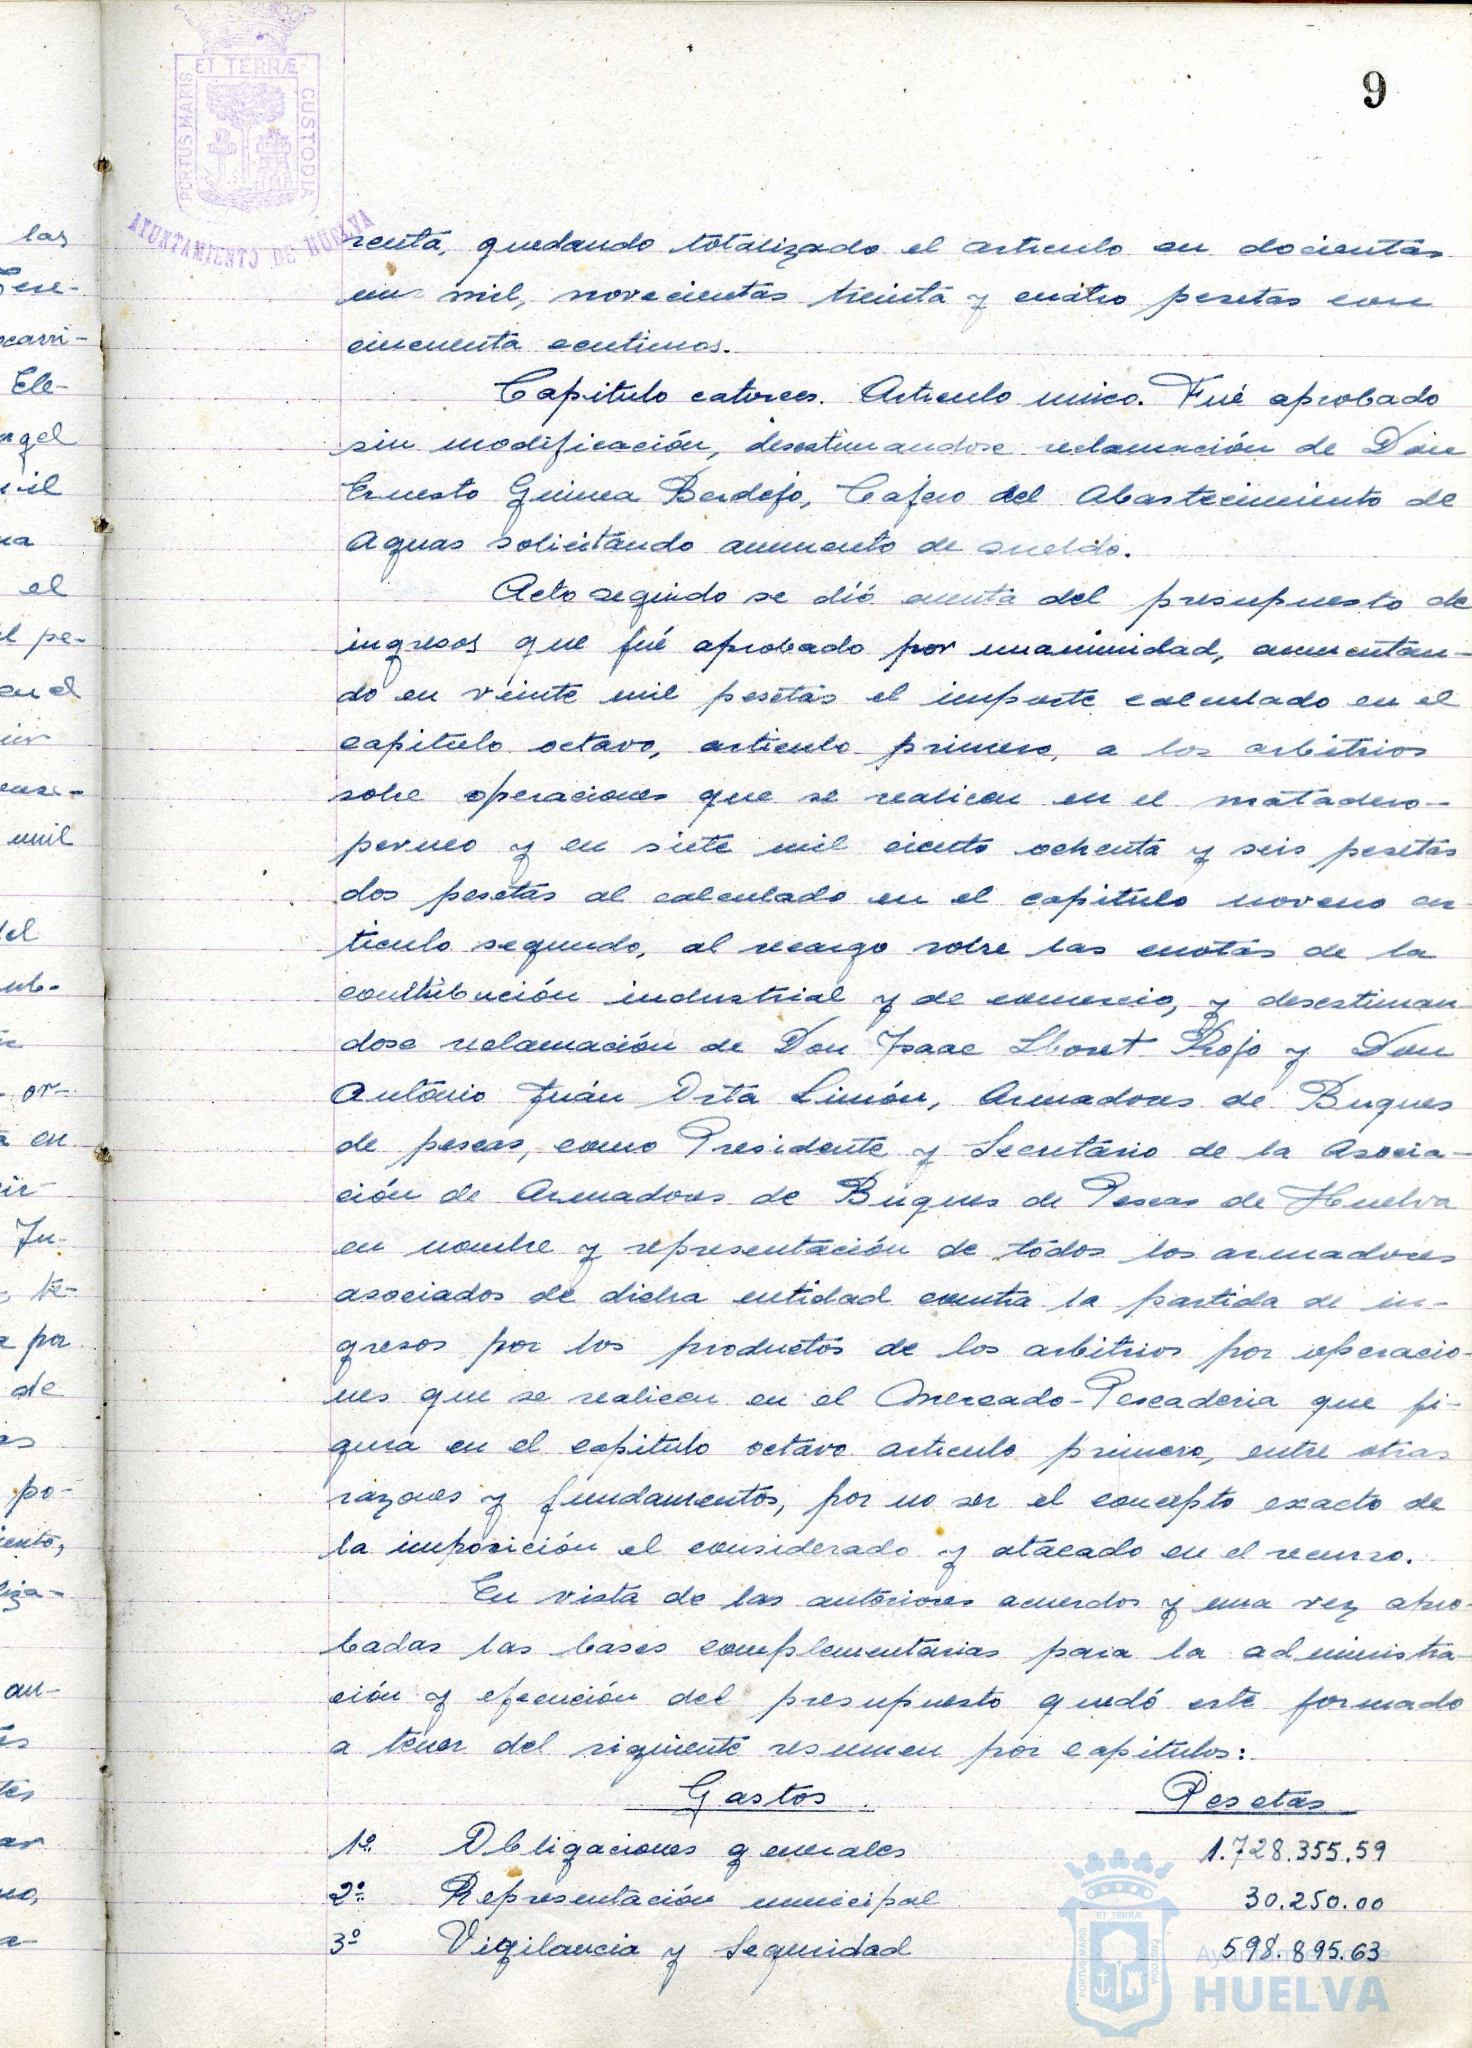 9
ET TERRÆ
PORTUS MARIS
CUSTODIA
AYUNTAMIENTO DE HUELVA
renta, quedando totalizado el articulo en docientas
un mil, novecientas treinta y cuatro pesetas con
cincuenta centimos.
Capitulo catorces. Articulo unico. Fué aprobado
sin modificación, desestimandose reclamación de Don
Ernesto Guinea Berdejo, Cajero del Abastecimiento de
Aguas solicitando aumento de sueldo.
Acto seguido se dió cuenta del presupuesto de
ingresos que fué aprobado por unanimidad, aumentan-
do en veinte mil pesetas el importe calculado en el
capitulo octavo, articulo primero, a los arbitrios
sobre operaciones que se realicen en el matadero-
perneo y en siete mil ciento ochenta y seis pesetas
dos pesetas al calculado en el capitulo noveno ar
ticulo segundo, al recargo sobre las cuotas de la
contribución industrial y de comercio, y desestiman
dose reclamación de Don Isaac Lloret Rojo y Don
Antonio Juán Orta Limón, Armadores de Buques
de pescas, como Presidente y Secretario de la Asocia-
ción de Armadores de Buques de Pescas de Huelva
en nombre y representación de todos los armadores
asociados de dicha entidad contra la partida de in-
gresos por los productos de los arbitrios por operacio-
nes que se realicen en el Mercado-Pescaderia que fi-
gura en el capitulo octavo articulo primero, entre otras
razones y fundamentos, por no ser el concepto exacto de
la imposición el considerado y atacado en el recurso.
En vista de las anteriores acuerdos y una vez apro-
badas las bases complementarias para la administra-
ción y ejecución del presupuesto quedó este formado
a tenor del siguiente resumen por capitulos:
Gastos. Pesetas
1º Obligaciones generales 1.728.355.59
2º Representación municipal 30.250.00
3º Vigilancia y Seguridad 598.895.63
Ayuntamiento de
HUELVA
las
carri-
Ele-
ngel
el
al pe-
en el
mil
del
or-
en
Ju-
por
de
po-
iento,